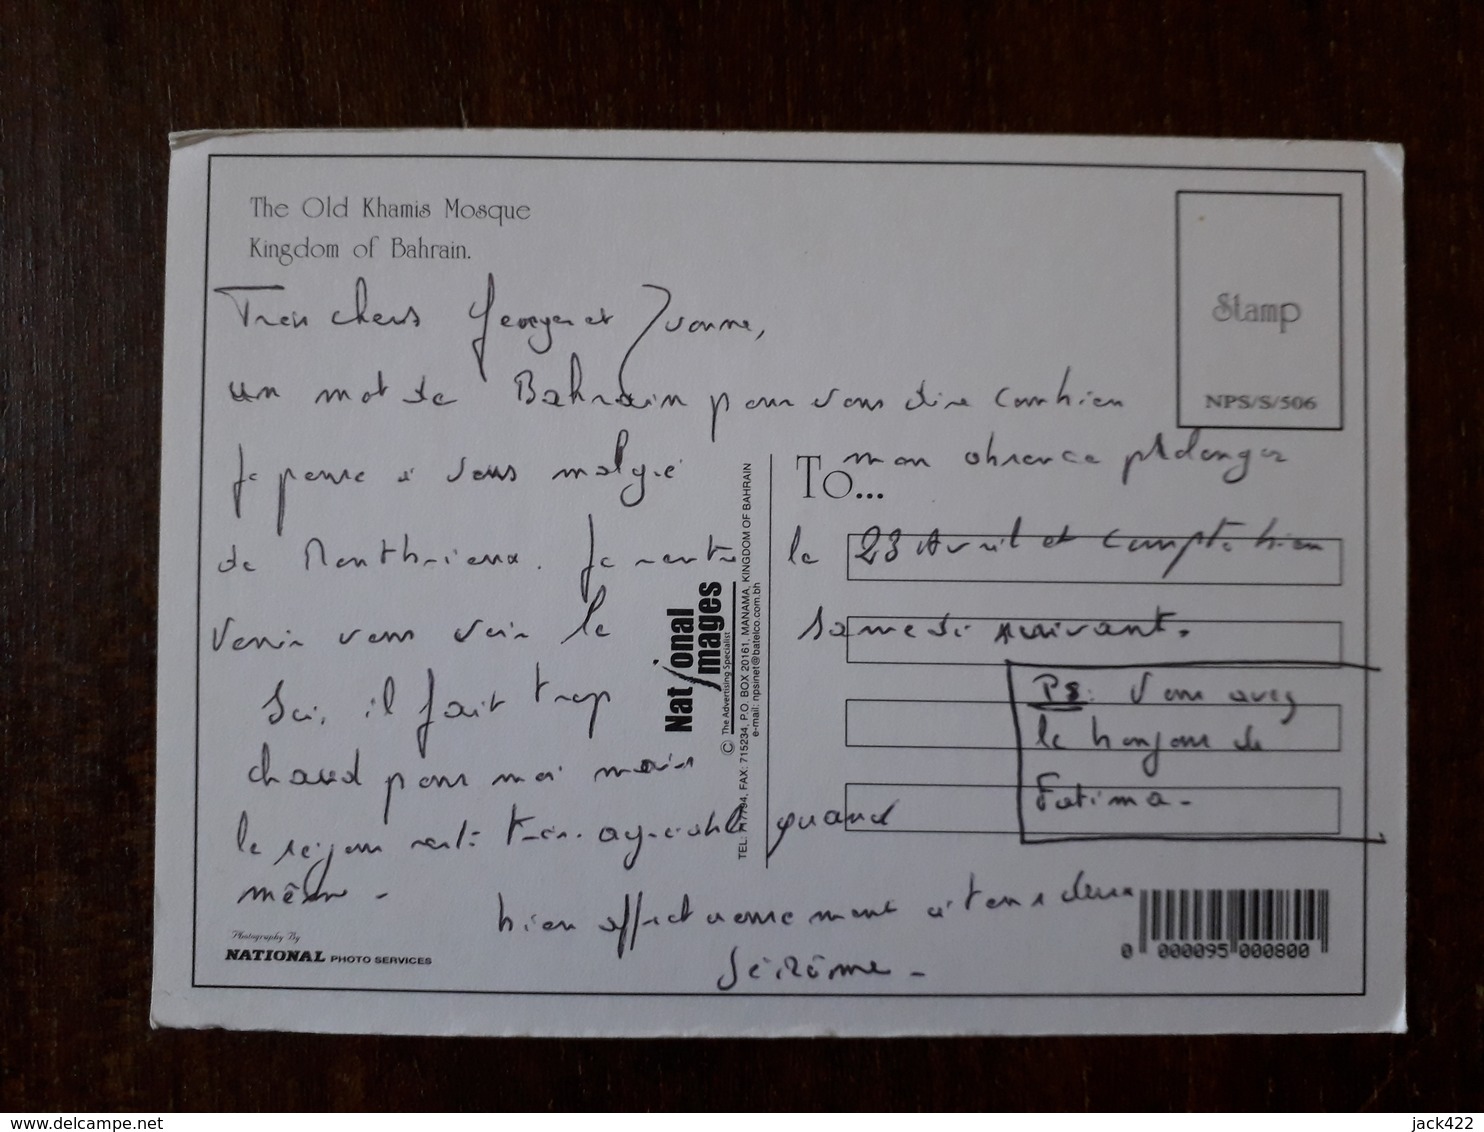 The Old Khamis Mosque
Kingdom of Bahrain.
Stamp
NPS/S/506
Tres chers Georges et Yvonne,
un mot de Bahrain pour vous dire combien
je pense à vous malgré mon absence prolongée
de Monthrieux. Je rentre le 23 Avril et compte bien
venir vous voir le samedi suivant.
Ici, il fait trop
chaud pour moi mais
le séjour reste très agréable quand
même -
bien affectueusement à tous deux
Jérôme -
PS: Vous avez
le bonjour de
Fatima -
To...
National Images
© The Advertising Specialist
TEL: 717794, FAX: 715234, P.O. BOX 20161, MANAMA, KINGDOM OF BAHRAIN
e-mail: npsinet@batelco.com.bh
Photography By
NATIONAL PHOTO SERVICES
0 000095 000800
www.delcampe.net
jack422